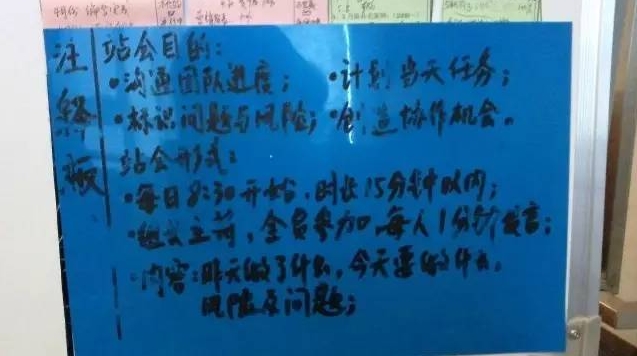 注
释
板
站会目的:
•沟通团队进度; •计划当天任务;
•标识问题与风险; •创造协作机会。
站会形式:
•每日8:30开始,时长15分钟以内;
•组长主荷,全员参加,每人1分钟发言;
•内容:昨天做了什么,今天要做什么,
风险及问题;